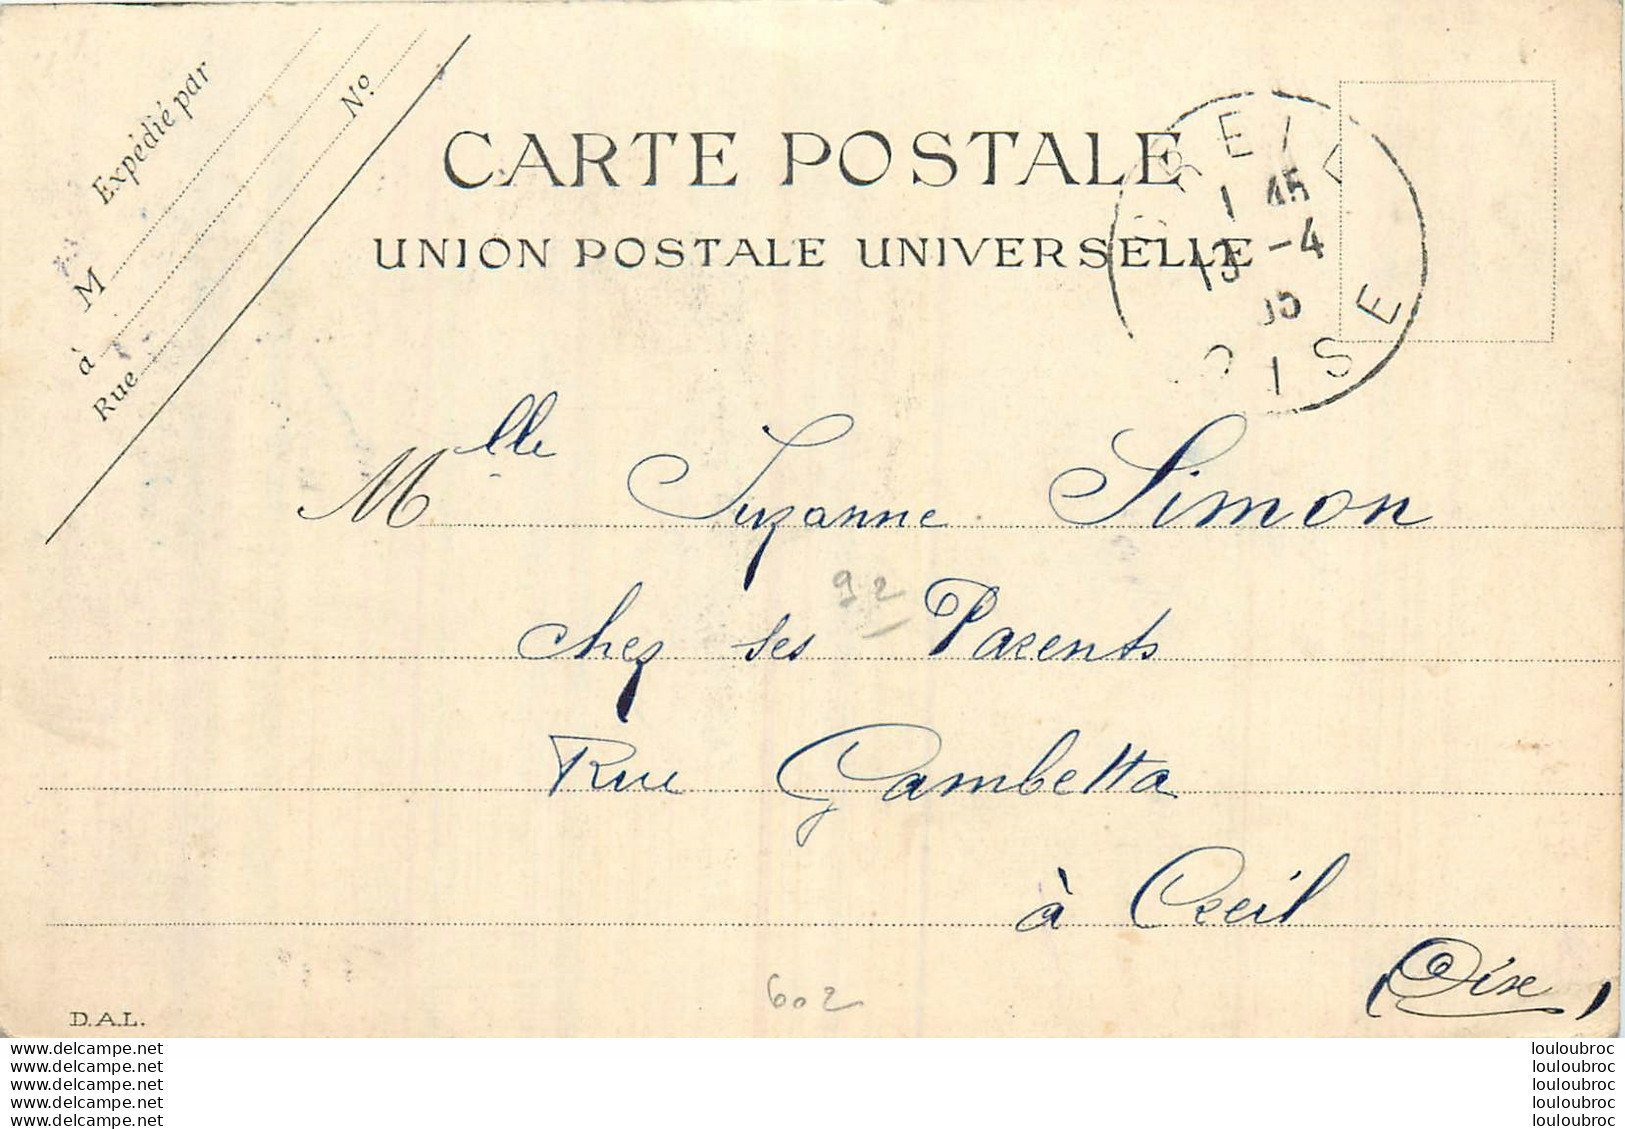 Expédié par
M
à
Rue Nº
CARTE POSTALE
UNION POSTALE UNIVERSELLE
1 45
13 -4
05
OISE
Mlle Suzanne Simon
chez ses Parents
92
Rue Gambetta
à Creil
(Oise)
602
D.A.L.
www.delcampe.net
www.delcampe.net
www.delcampe.net
www.delcampe.net
www.delcampe.net
louloubroc
louloubroc
louloubroc
louloubroc
louloubroc